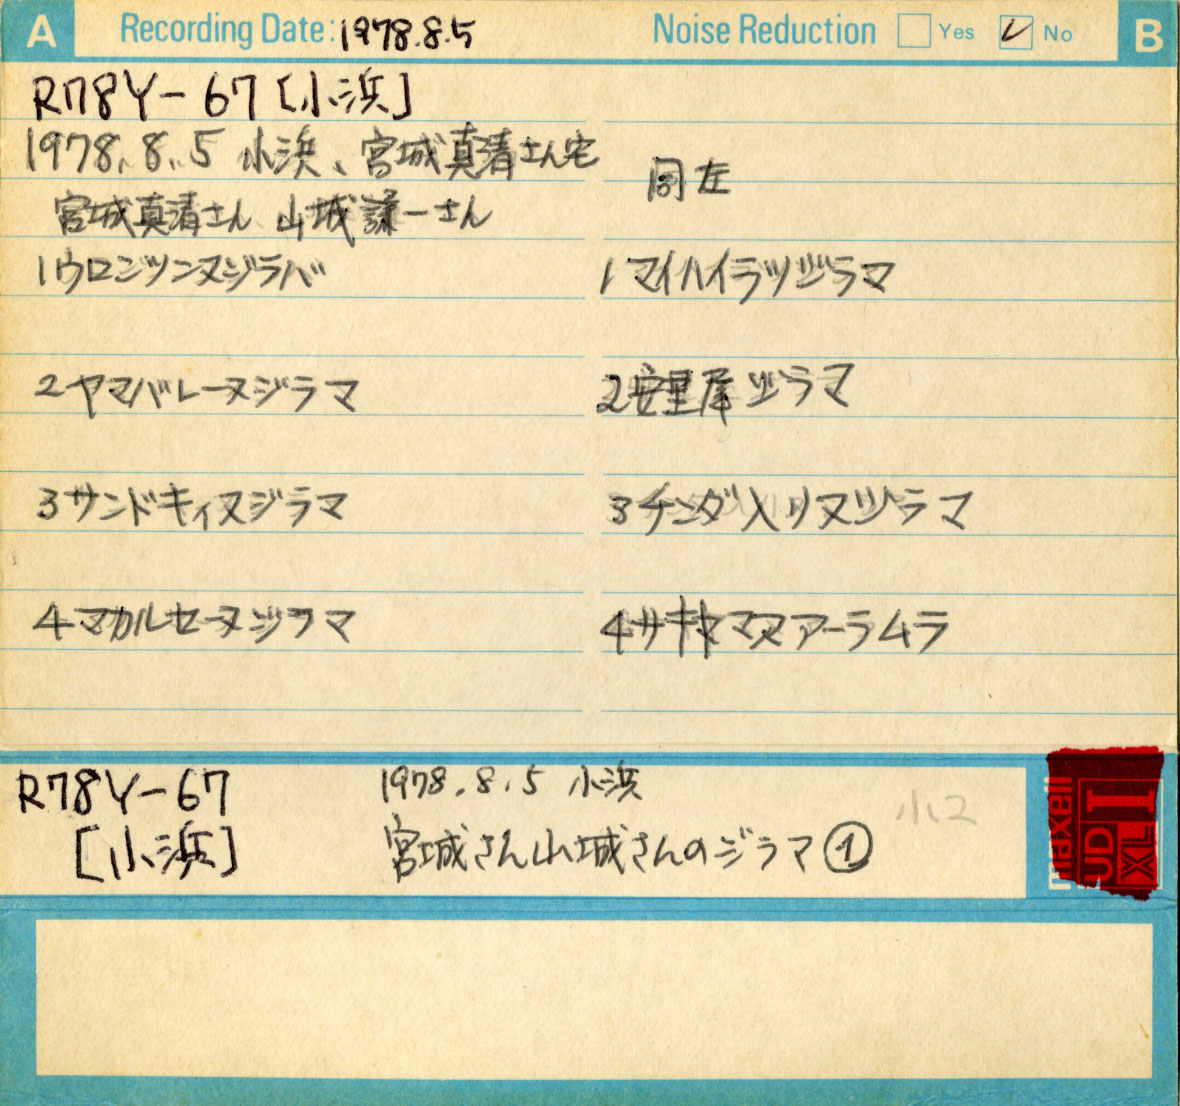 A Recording Date: 1978.8.5 Noise Reduction Yes No B
R78Y-67 [小浜]
1978.8.5 小浜、宮城真清さん宅
宮城真清さん 山城謙一さん
同左
1 ウロンツンヌジラバ
2 ヤマバレーヌジラマ
3 サンドキィヌジラマ
4 マカルセーヌジラマ
1 マイハイラツジラマ
2 安里屋ジラマ
3 チンダ入リヌジラマ
4 サキヤマヌアーラムラ
R78Y-67
[小浜]
1978.8.5 小浜
宮城さん山城さんのジラマ①
小2
maxell
UD
XL I